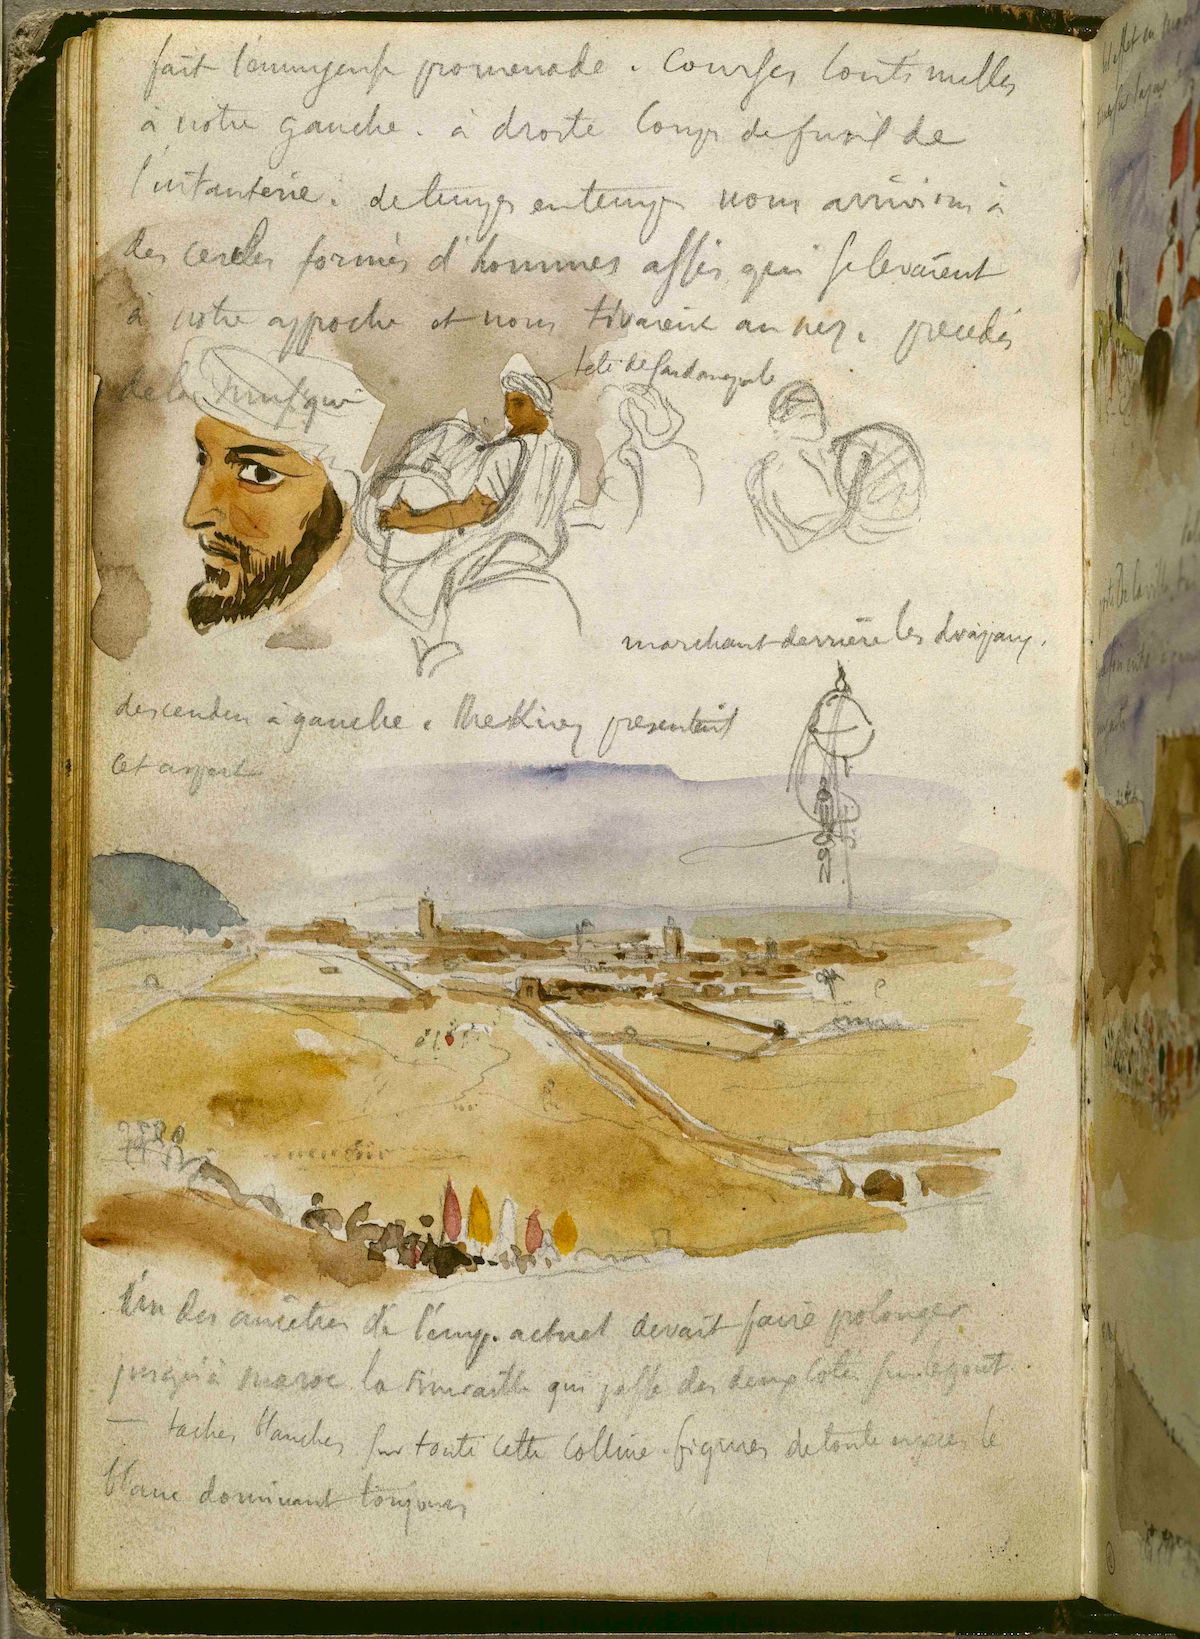 fait l'immense promenade. Courses continuelles
à notre gauche. à droite coups de fusil de
l'infanterie. de temps en temps nous arrivions à
des cercles formés d'hommes assis qui se levaient
à notre approche et nous tiraient au nez. precedés
de la musique
tete de Sardanapale
marchant derrière les drapeaux.
descendu à gauche. Mekinez presentait
cet aspect
Un des ancêtres de l'emp. actuel devait faire prolonger
jusqu'à maroc la muraille qui passe des deux cotés sur le pont
— taches blanches sur toute cette colline. figures de toute espèce le
blanc dominant toujours